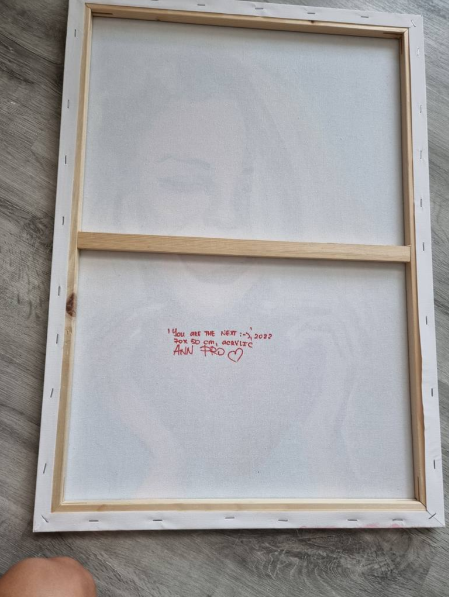 "YOU ARE THE NEXT :-)", 2022
70x50 cm, ACRYLIC
ANN PRO ♡